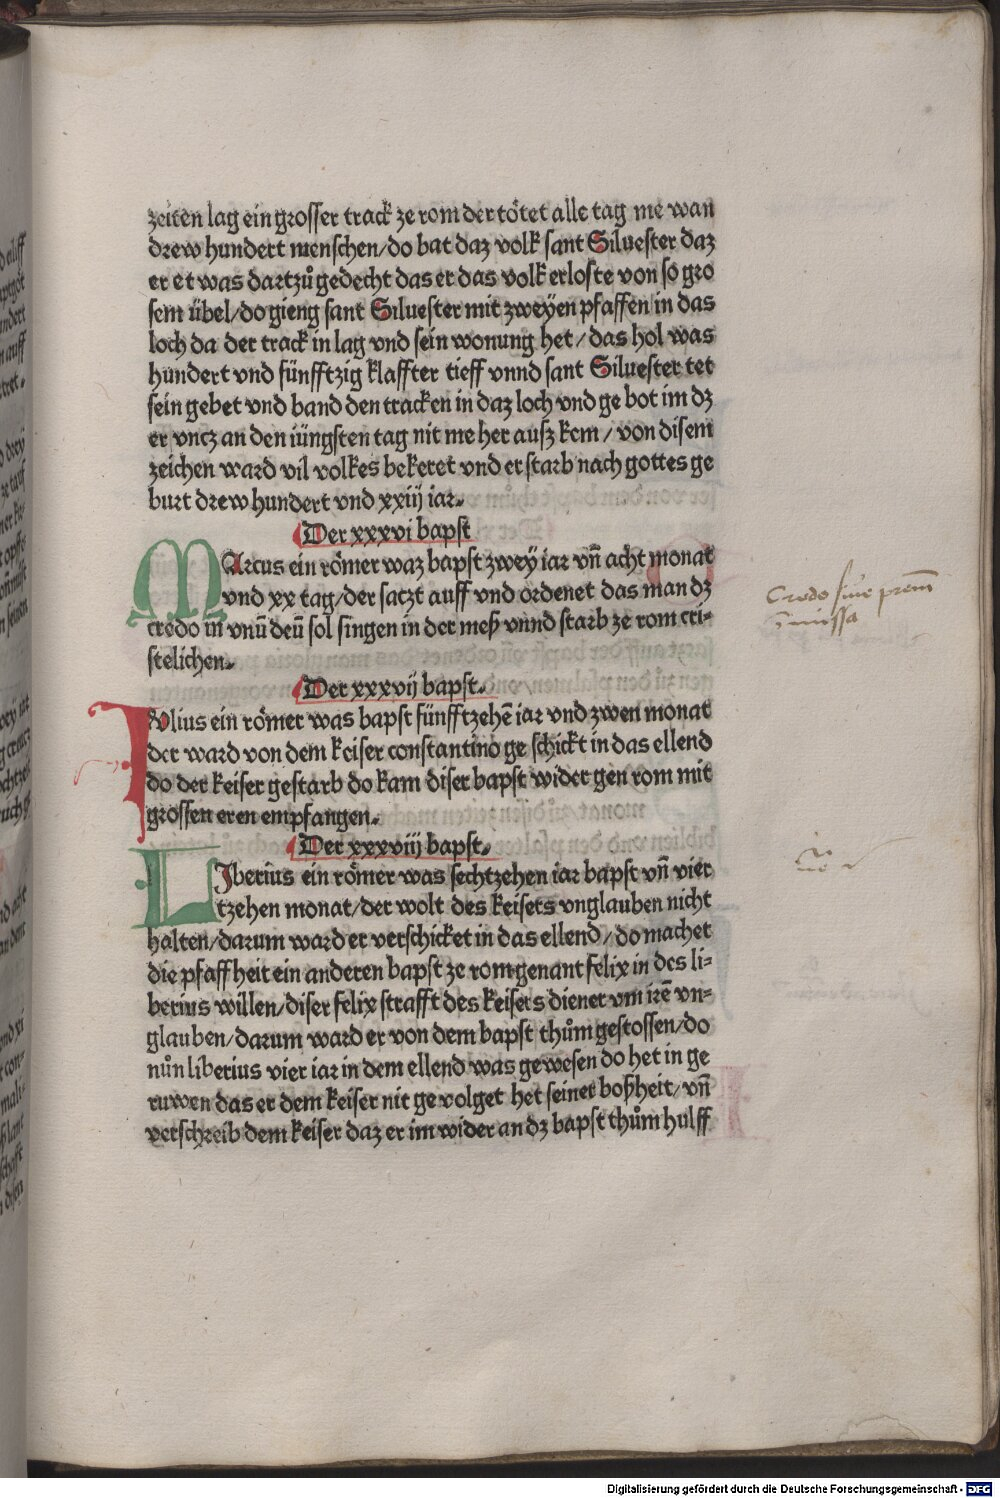 zeiten lag ein grosser track ze rom der tötet alle tag me wan
drew hundert menschen/do bat daz volk sant Siluester daz
er et was dartzů gedecht das er das volk erloste von so gro
sem übel/do gieng sant Siluester mit zweÿen pfaffen in das
loch da der track in lag vnd sein wonung het/das hol was
hundert vnd fünfftzig klaffter tieff vnnd sant Siluester tet
sein gebet vnd band den tracken in daz loch vnd ge bot im dz
er vncz an den iüngsten tag nit me her ausz kem/von disem
zeichen ward vil volkes bekeret vnd er starb nach gottes ge
burt drew hundert vnd xxiij iar.
Der xxxvi bapst
MArcus ein römer waz bapst zweÿ iar vñ acht monat
vnd xx tag/der satzt auff vnd ordenet das man dz
credo in vnū deū sol singen in der meß vnnd starb ze rom cri-
stelichen.
Der xxxvij bapst.
IVlius ein römer was bapst fünfftzehē iar vnd zwen monat
der ward von dem keiser constantino ge schickt in das ellend
do der keiser gestarb do kam diser bapst wider gen rom mit
grossen eren empfangen.
Der xxxviij bapst.
LIberius ein römer was sechtzehen iar bapst vñ vier
tzehen monat/der wolt des keisers vnglauben nicht
halten/darum ward er verschicket in das ellend/do machet
die pfaffheit ein anderen bapst ze rom genant felix in des li-
berius willen/diser felix strafft des keisers diener vm irē vn-
glauben/darum ward er von dem bapst thům gestossen/do
nůn liberius vier iar in dem ellend was gewesen do het in ge
ruwen das er dem keiser nit ge volget het seiner boßheit/vñ
verschreib dem keiser daz er im wider an dz bapst thům hulff
Credo
missa
Digitalisierung gefördert durch die Deutsche Forschungsgemeinschaft - DFG